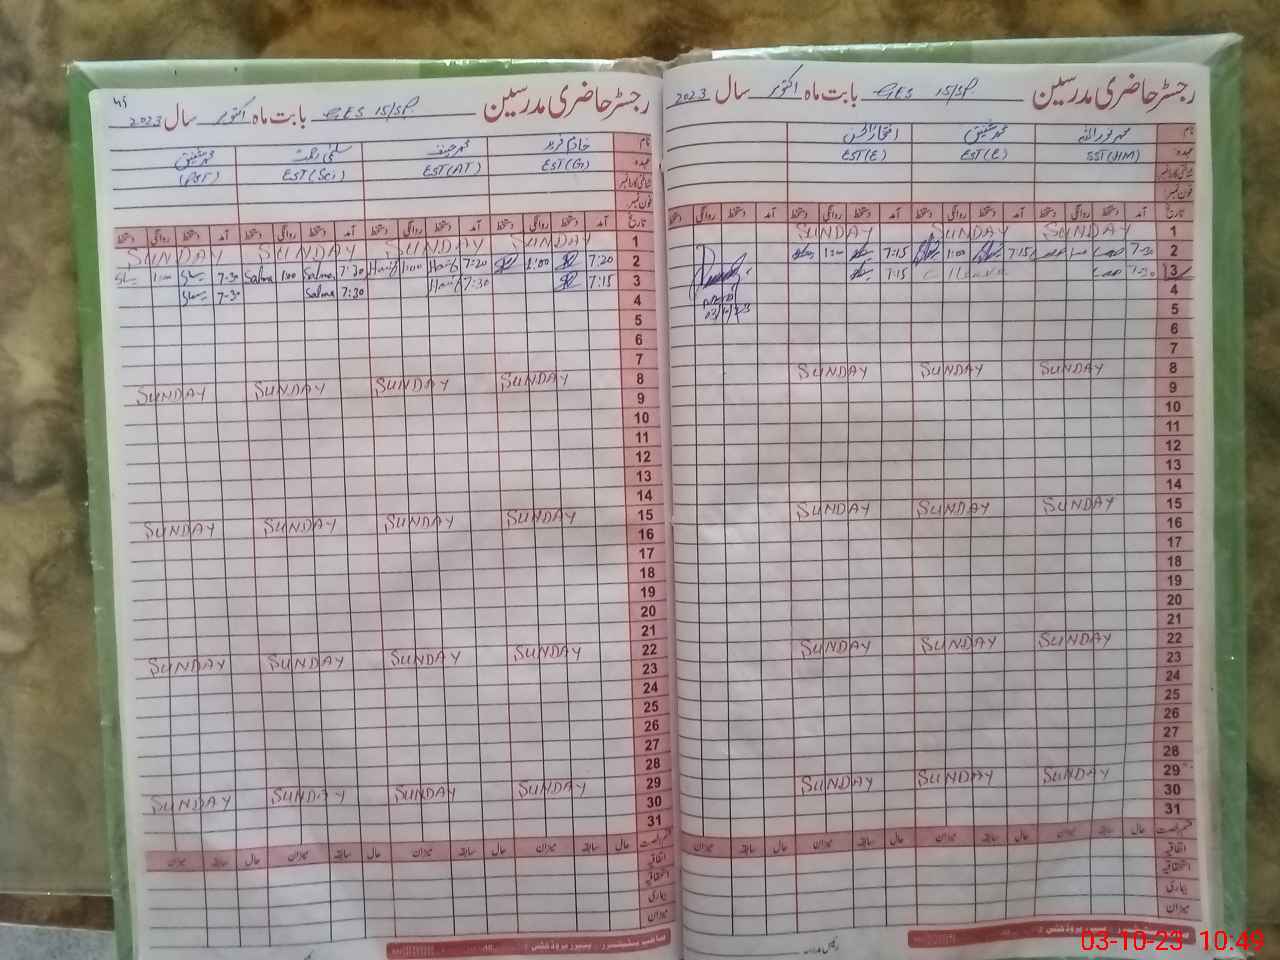 رجسٹر حاضری مدرسین GES 15/SP بابت ماہ اکتوبر سال 2023
نام محمد نور اللہ محمد شفیق افتخار الحسن
عہدہ SST(HM) EST(E) EST(E)
شناختی کارڈ نمبر
فون نمبر
تاریخ آمد دستخط روانگی دستخط آمد دستخط روانگی دستخط آمد دستخط روانگی دستخط آمد دستخط روانگی دستخط
1 SUNDAY SUNDAY SUNDAY
2 7-30 7:15 1:00 7:15 1:00
3 7-30 7:15
4
5 03/10/23
6
7
8 SUNDAY SUNDAY SUNDAY
9
10
11
12
13
14
15 SUNDAY SUNDAY SUNDAY
16
17
18
19
20
21
22 SUNDAY SUNDAY SUNDAY
23
24
25
26
27
28
29 SUNDAY SUNDAY SUNDAY
30
31
حال سابقہ میزان حال سابقہ میزان حال سابقہ میزان حال سابقہ میزان
اتفاقیہ
استحقاقیہ
بیماری
میزان
رجسٹر حاضری مدرسین GES 15/SP. بابت ماہ اکتوبر سال 2023
نام خادم فرید محمد حنیف سلمیٰ رحمت محمد شفیق
عہدہ EST(G) EST(AT) EST(Sc) (PST)
شناختی کارڈ نمبر
فون نمبر
تاریخ آمد دستخط روانگی دستخط آمد دستخط روانگی دستخط آمد دستخط روانگی دستخط آمد دستخط روانگی دستخط
1 SUNDAY SUNDAY SUNDAY SUNDAY
2 7:20 1:00 7:20 Hanif 1:00 Hanif 7:20 Salma 1:00 Salma 7-30 1:00
3 7:15 7:30 Hanif 7:30 Salma 7-30
4
5
6
7
8 SUNDAY SUNDAY SUNDAY SUNDAY
9
10
11
12
13
14
15 SUNDAY SUNDAY SUNDAY SUNDAY
16
17
18
19
20
21
22 SUNDAY SUNDAY SUNDAY SUNDAY
23
24
25
26
27
28
29 SUNDAY SUNDAY SUNDAY SUNDAY
30
31
حال سابقہ میزان حال سابقہ میزان حال سابقہ میزان حال سابقہ میزان
اتفاقیہ
استحقاقیہ
بیماری
میزان
03-10-23 10:49